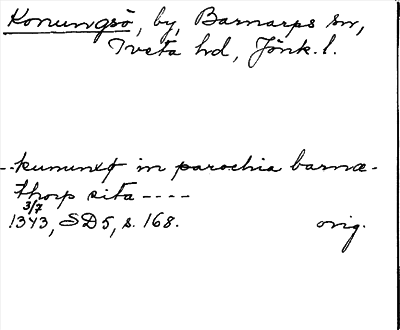 Konungsö, by, Barnarps sn,
Tveta hd, Jönk. l.
--kununxø in parochia barnæ-
thorp sita ----
3/7
1343, SD5, s. 168. orig.